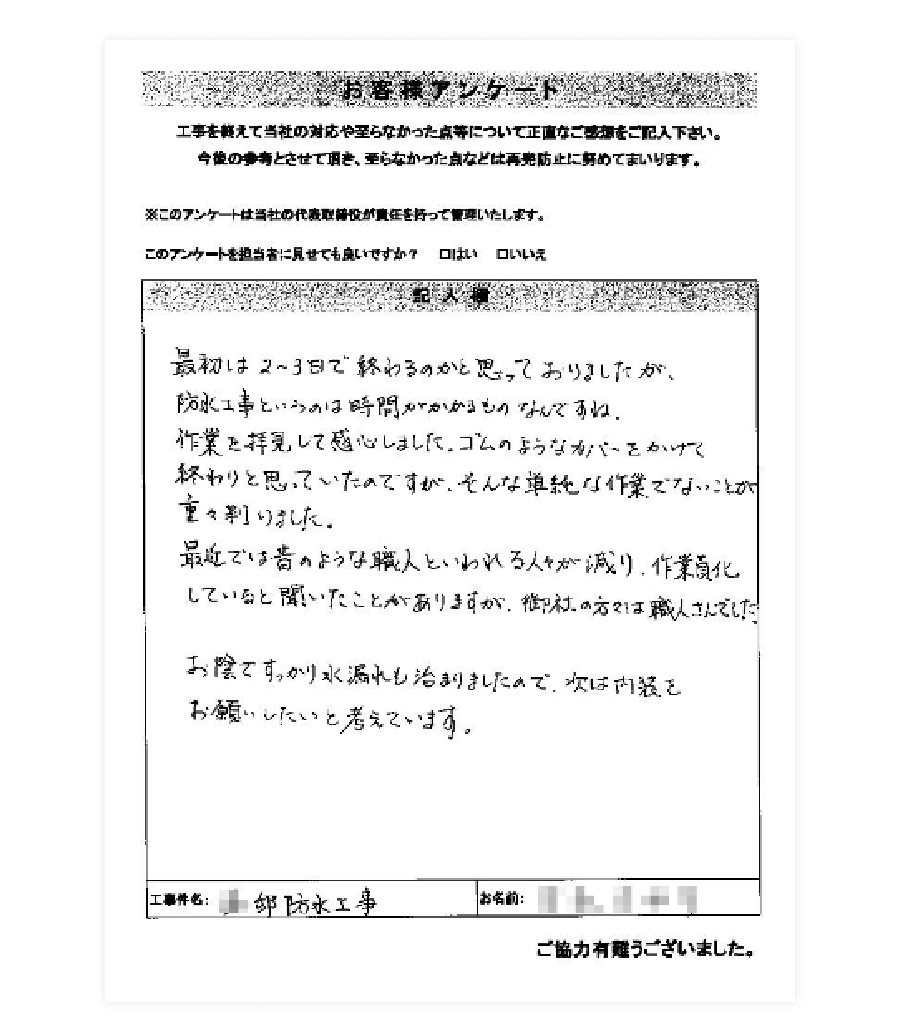 お客様アンケート
工事を終えて当社の対応や至らなかった点等について正直なご感想をご記入下さい。
今後の参考とさせて頂き、至らなかった点などは再発防止に努めてまいります。
※このアンケートは当社の代表取締役が責任を持って管理いたします。
このアンケートを担当者に見せても良いですか? □はい □いいえ
記入欄
最初は2~3日で終わるのかと思っておりましたが、
防水工事というのは時間がかかるものなんですね。
作業を拝見して感心しました。ゴムのようなカバーをかけて
終わりと思っていたのですが、そんな単純な作業でないことが
重々判りました。
最近では昔のような職人といわれる人々が減り、作業員化
していると聞いたことがありますが、御社の方々は職人さんでした
お陰ですっかり水漏れも治まりましたので、次は内装を
お願いしたいと考えています。
工事件名: 邸防水工事 お名前:
ご協力有難うございました。